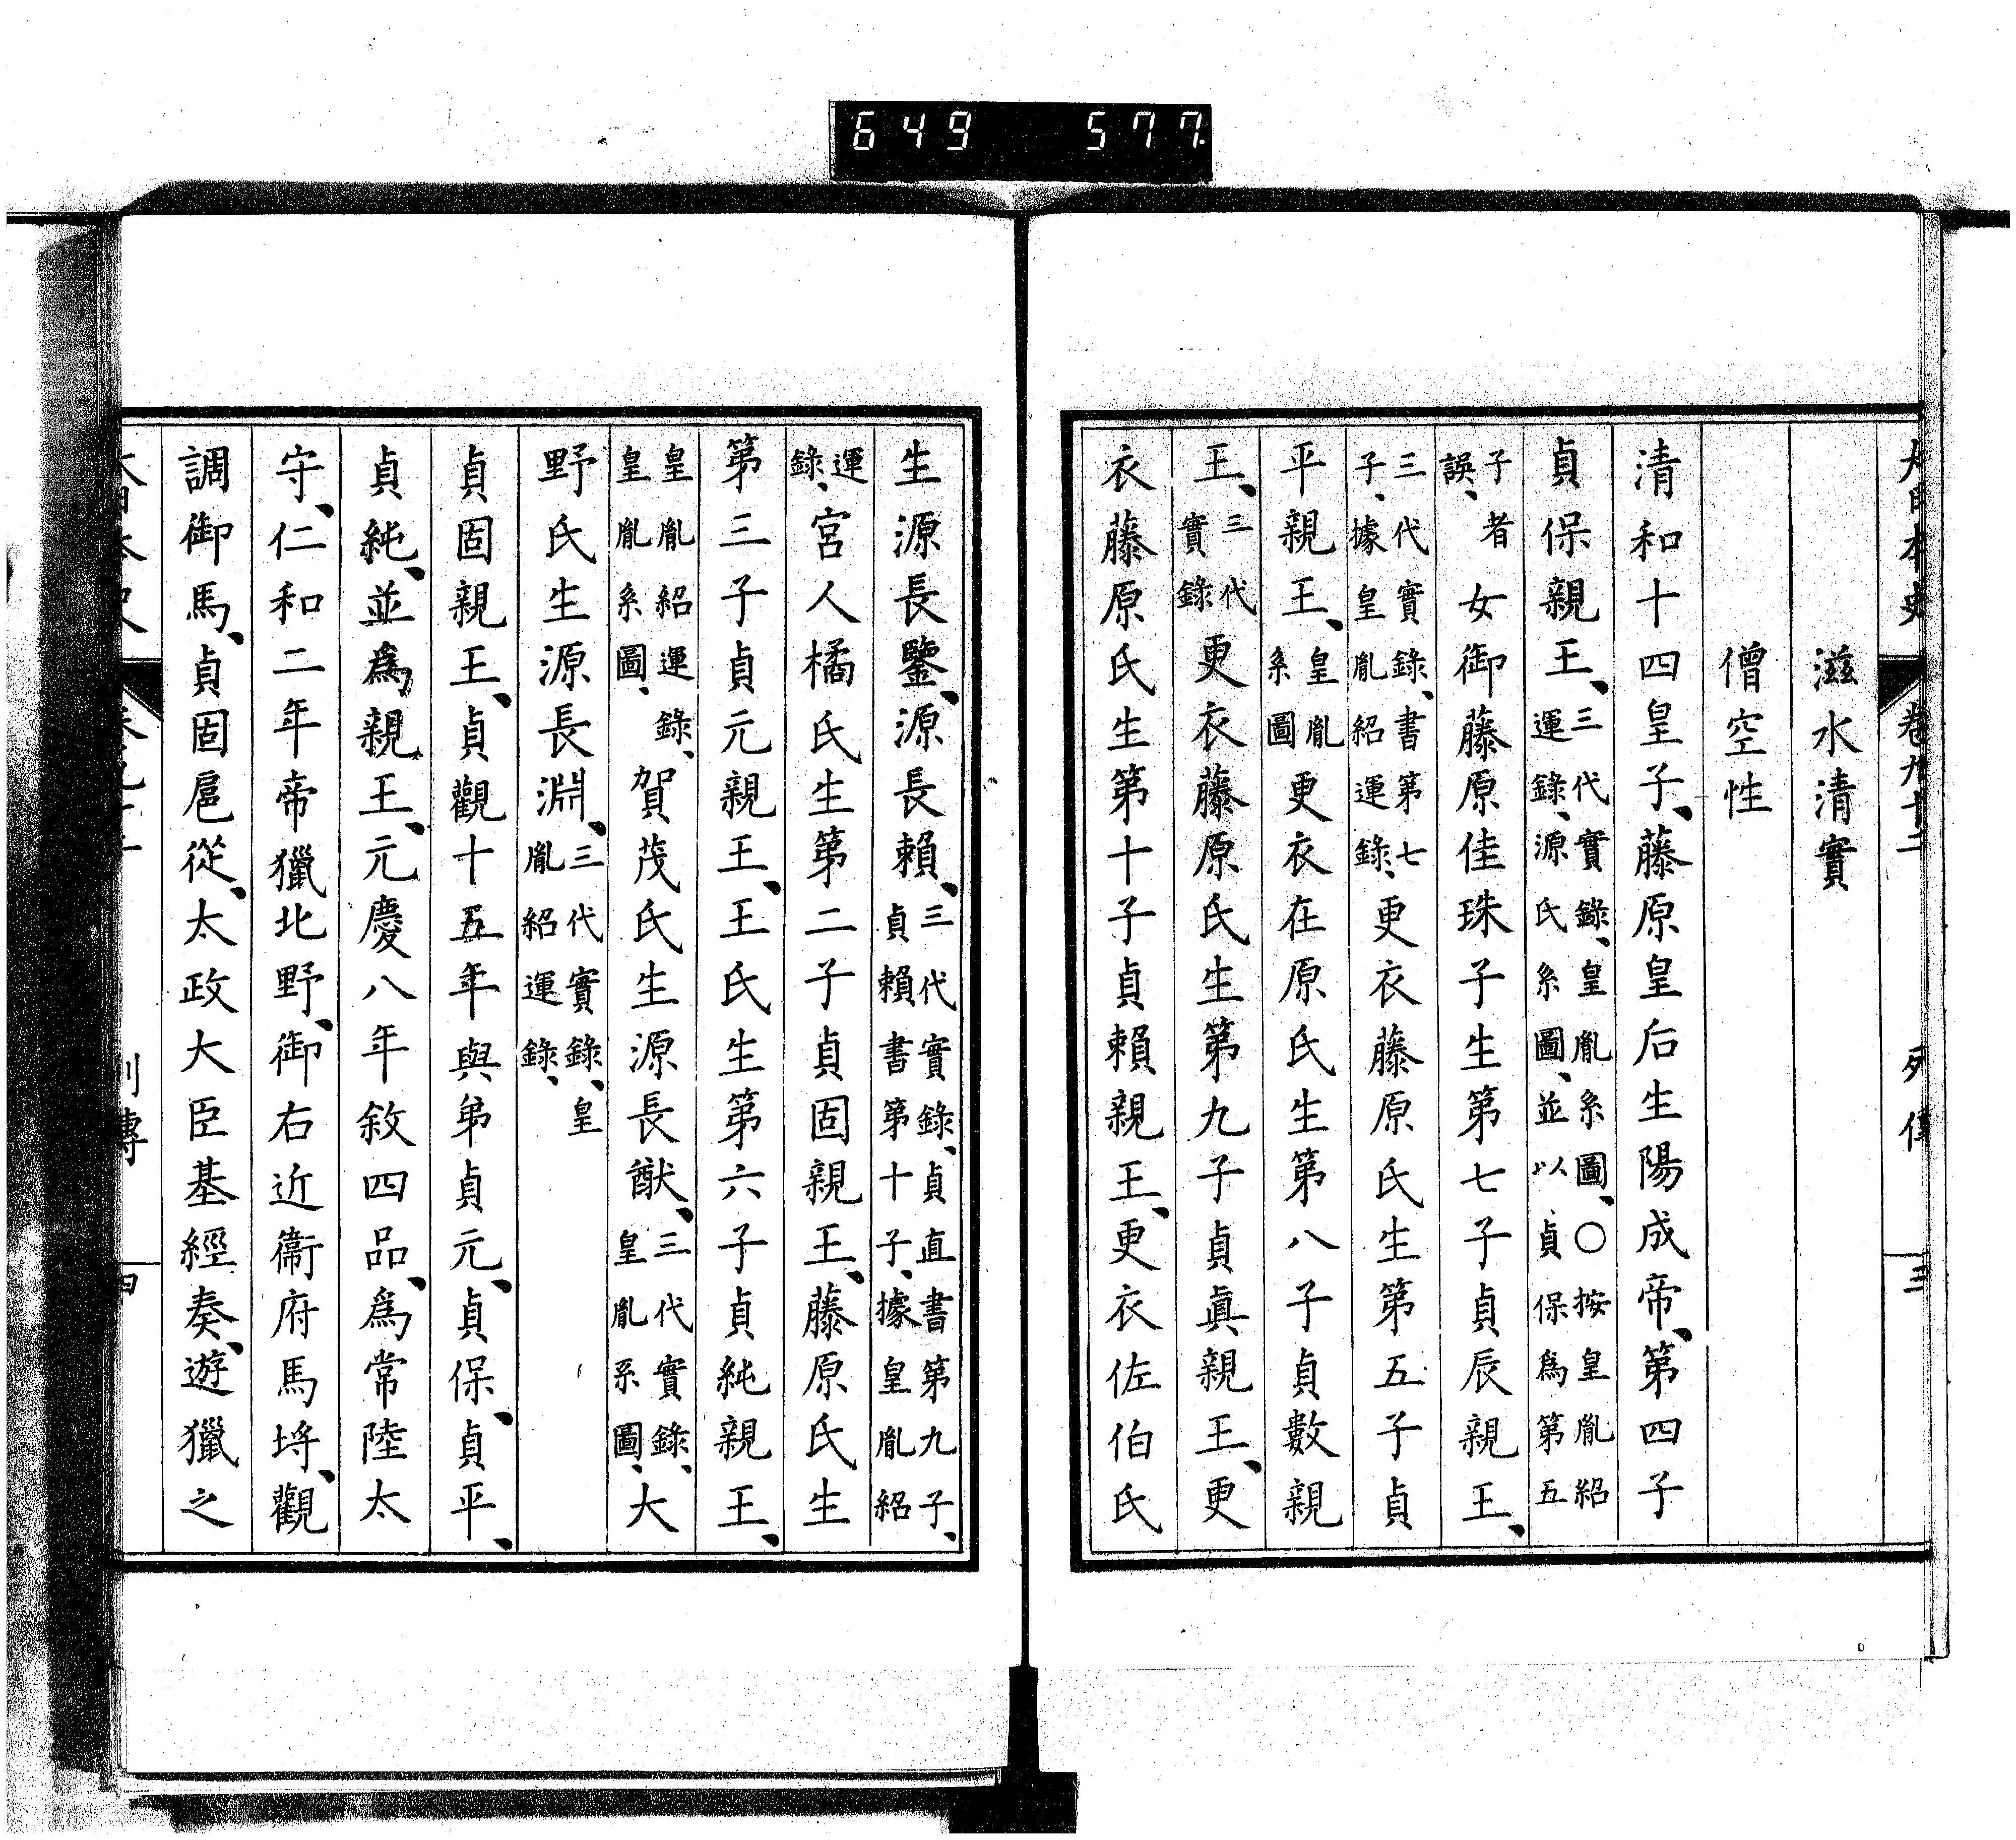 649 577.
大日本史 卷九十二 列傳 三
滋水清實
僧空性
清和十四皇子、藤原皇后生陽成帝、第四子
貞保親王、三代實錄、皇胤系圖、○按皇胤紹運錄、源氏系圖、並以貞保爲第五
子者誤、女御藤原佳珠子生第七子貞辰親王、
三代實錄、書第七子、據皇胤紹運錄、更衣藤原氏生第五子貞
平親王、皇胤系圖更衣在原氏生第八子貞數親
王、三代實錄更衣藤原氏生第九子貞眞親王、更
衣藤原氏生第十子貞賴親王、更衣佐伯氏
生源長鑒、源長賴、三代實錄、貞直書第九子、貞賴書第十子、據皇胤紹
運錄、宮人橘氏生第二子貞固親王、藤原氏生
第三子貞元親王、王氏生第六子貞純親王、
皇胤紹運錄、皇胤系圖、賀茂氏生源長猷、三代實錄、皇胤系圖、大
野氏生源長淵、三代實錄、皇胤紹運錄、
貞固親王、貞觀十五年與弟貞元、貞保、貞平、
貞純、並爲親王、元慶八年敘四品、爲常陸太
守、仁和二年帝獵北野、御右近衞府馬埒、觀
調御馬、貞固扈從、太政大臣基經奏、遊獵之
大日本史 卷九十二 列傳 四